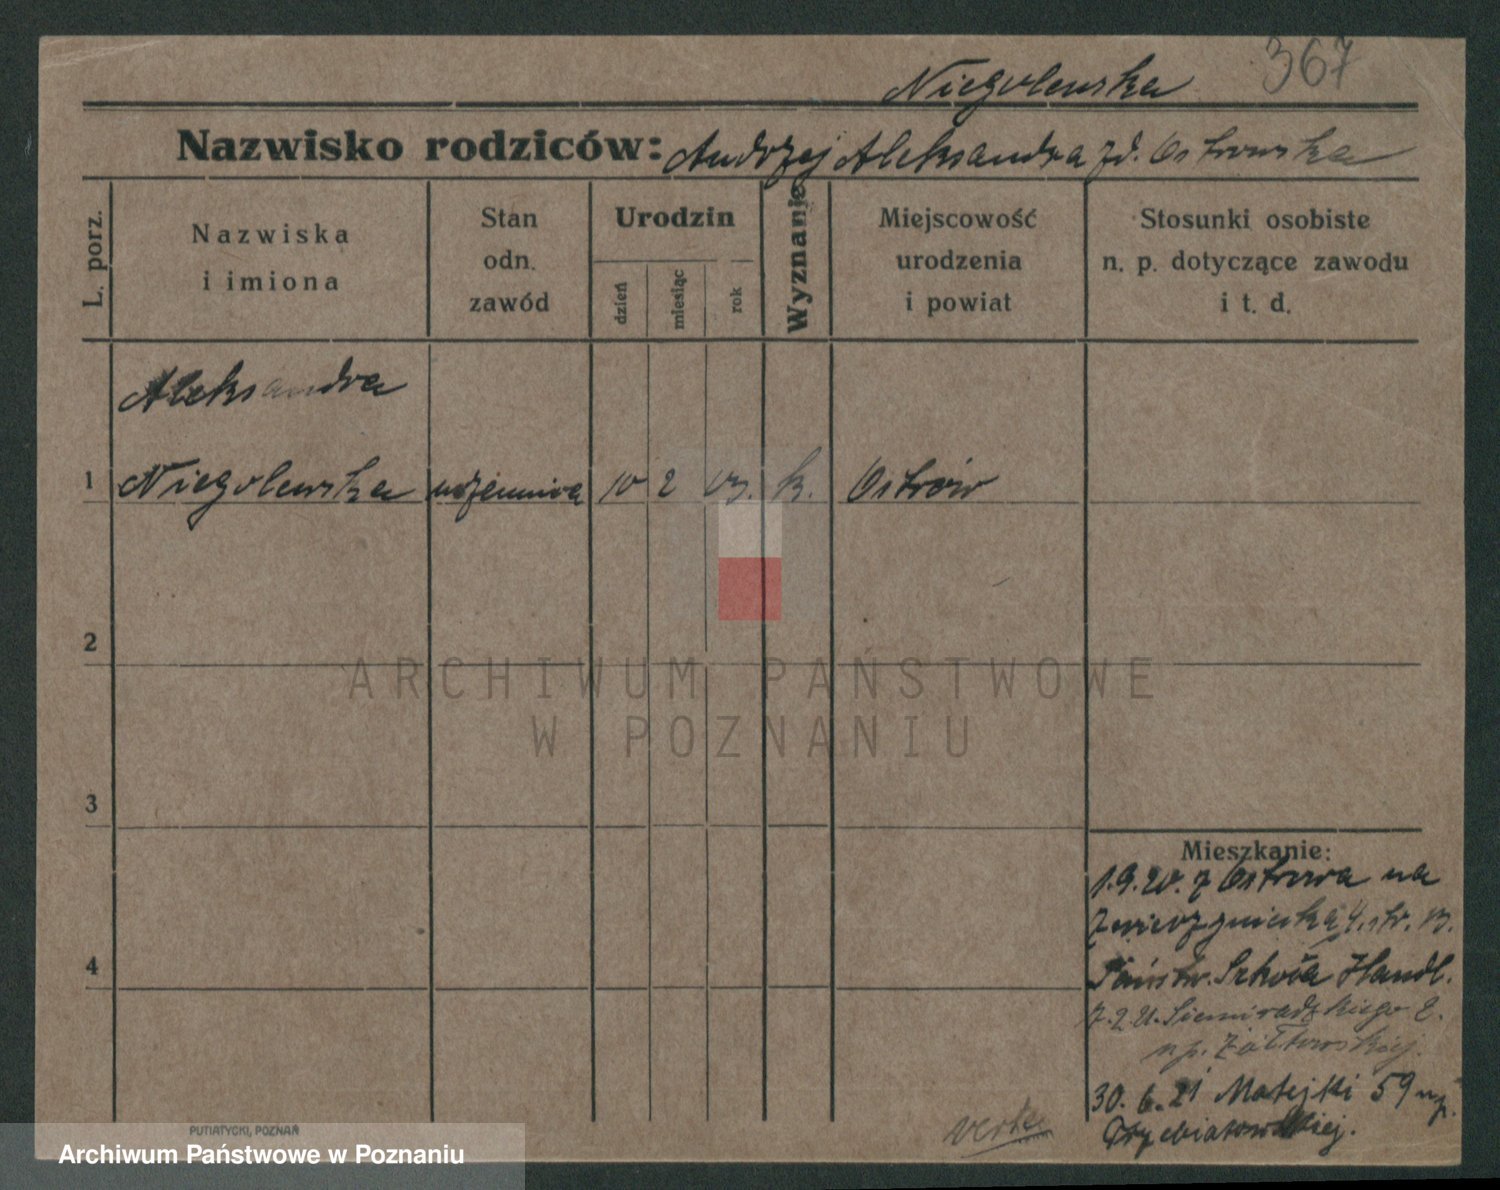 367
Niegolewska
Nazwisko rodziców: Andrzej Aleksandra zd. Ostrowska
L. porz.
Nazwiska
i imiona
Stan
odn.
zawód
Urodzin
dzień
miesiąc
rok
Wyznanie
Miejscowość
urodzenia
i powiat
Stosunki osobiste
n. p. dotyczące zawodu
i t. d.
Aleksandra
1 Niegolewska uczennica 10 2 03. k. Ostrów
2
ARCHIWUM PAŃSTWOWE
W POZNANIU
3
Mieszkanie:
1.9.20. z Ostrowa na
4. str.
4
Państw. Szkoła Handl.
Siemiradzkiego
np. Żółtowskiej.
30.6.21 Matejki 59 np.
verte
PUTIATYCKI, POZNAŃ
Archiwum Państwowe w Poznaniu